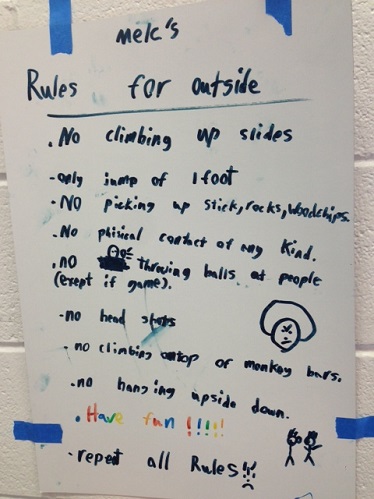 melc's
Rules for outside
. No climbing up slides
-only jump of 1 foot
-NO picking up stick, rocks, woodchips.
.No phisical contact of any kind.
.no throwing balls at people
(exept if game).
-no head
-no climbing ontop of monkey bars.
.no hanging upside down.
.Have fun !!!!!
-repeat all Rules!!